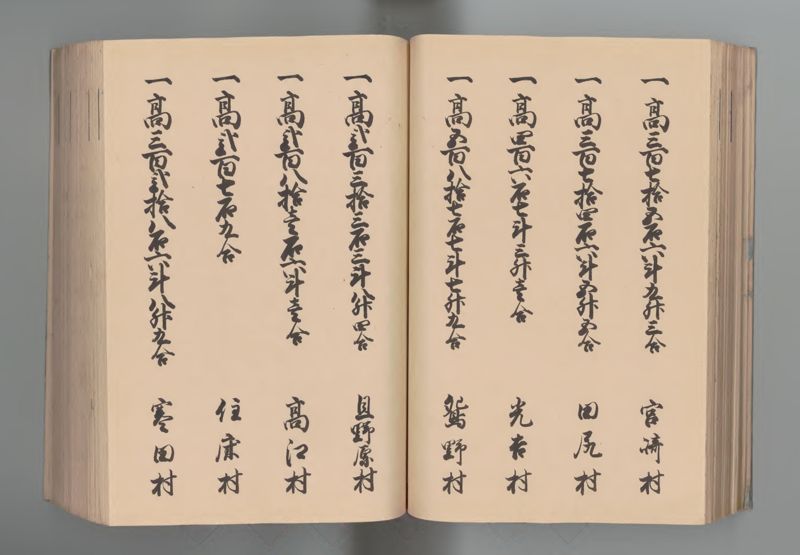 一高三百七拾五石六斗九升三合 宮崎村
一高三百七拾四石六斗五升五合 田尻村
一高四百六石七斗三升壱合 光吉村
一高五百八拾七石七斗七升九合 鴛野村
一高弐百三拾三石三斗八升四合 且野原村
一高弐百八拾壱石六斗壱合 高江村
一高弐百七石九合 住床村
一高三百弐拾八石六斗八升九合 寒田村